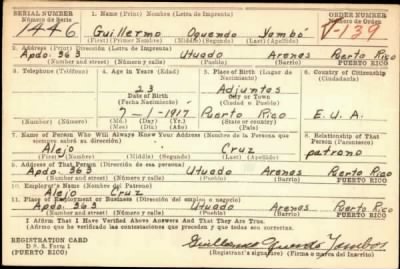 SERIAL NUMBER 1. Name (Print) Nombre (Letra de Imprenta) ORDER NUMBER
Número de Serie Número de Orden
1446 Guillermo Oquendo Yambó V-139
(First) (Primer) Nombre) (Middle) (Segundo) (Last) (Apellido)
2. Address (Print) Dirección (Letra de Imprenta)
Apdo. 363 Utuado Arenas Puerto Rico
(Number and street) (Número y calle) (Pueblo) (Barrio) PUERTO RICO
3. Telephone (Teléfono) 4. Age in Years (Edad) 5. Place of Birth (Lugar de Nacimiento) 6. Country of Citizenship (Ciudadanía)
23 Adjuntas
Date of Birth City or Town
(Fecha Nacimiento) (Ciudad o Pueblo)
7-1-1917 Puerto Rico E.U.A.
(Number) (Número) (Mo.) (Day) (Yr.) (State or country)
(Mes) (Día) (Año) (País)
7. Name of Person Who Will Always Know Your Address (Nombre de la Persona que siempre sabrá su dirección) 8. Relationship of That Person (Parentesco)
Alejo Cruz patrono
(First) (Nombre) (Middle) (Segundo) (Last) (Apellido)
9. Address of That Person (Dirección de esa persona)
Apdo. 363 Utuado Arenas Puerto Rico
(Number and street) (Número y calle) (Pueblo) (Barrio) PUERTO RICO
10. Employer's Name (Nombre del Patrono)
Alejo Cruz
11. Place of Employment or Business (Dirección del empleo o negocio)
Apdo. 363 Utuado Arenas Puerto Rico
(Number and street) (Número y calle) (Pueblo) (Barrio) PUERTO RICO
I Affirm That I Have Verified Above Answers and That They Are True.
Afirmo que he verificado las contestaciones que preceden y que todas son correctas.
REGISTRATION CARD
D. S. S. Form 1
(PUERTO RICO) Guillermo Oquendo Yambó
(Registrant's signature) (Firma o marca del Inscrito)